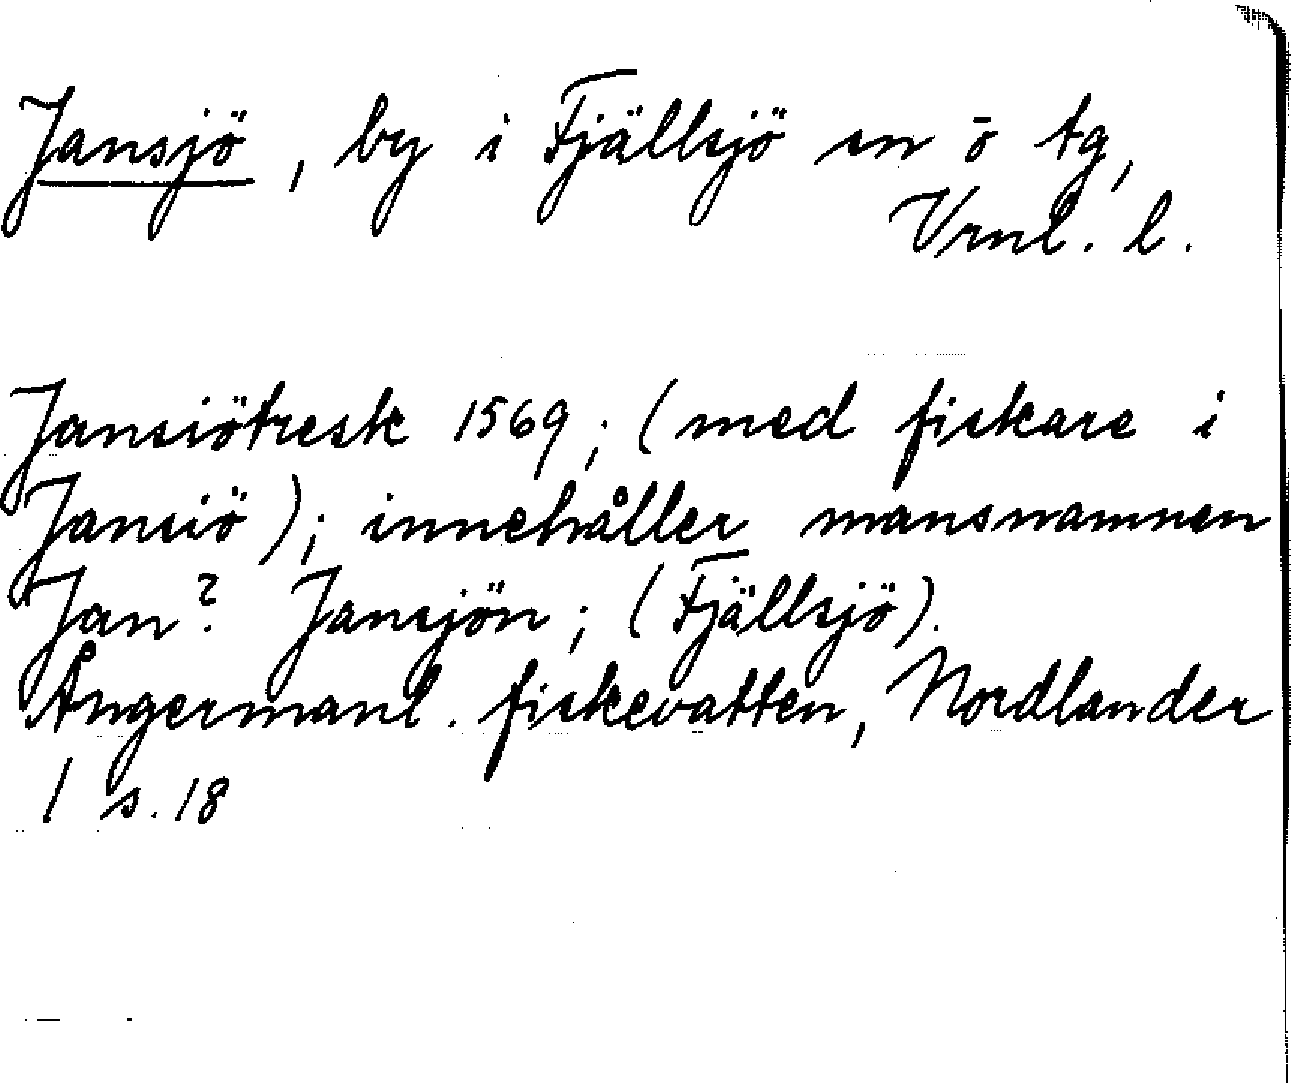 Jansjö, by i Fjällsjö sn o tg,
Vrnl. l.
Jansiötresk 1569; (med fiskare i
Jansiö); innehåller mansnamnen
Jan? Jansjön; (Fjällsjö).
Ångermanl. fiskevatten, Nordlander
1 s. 18